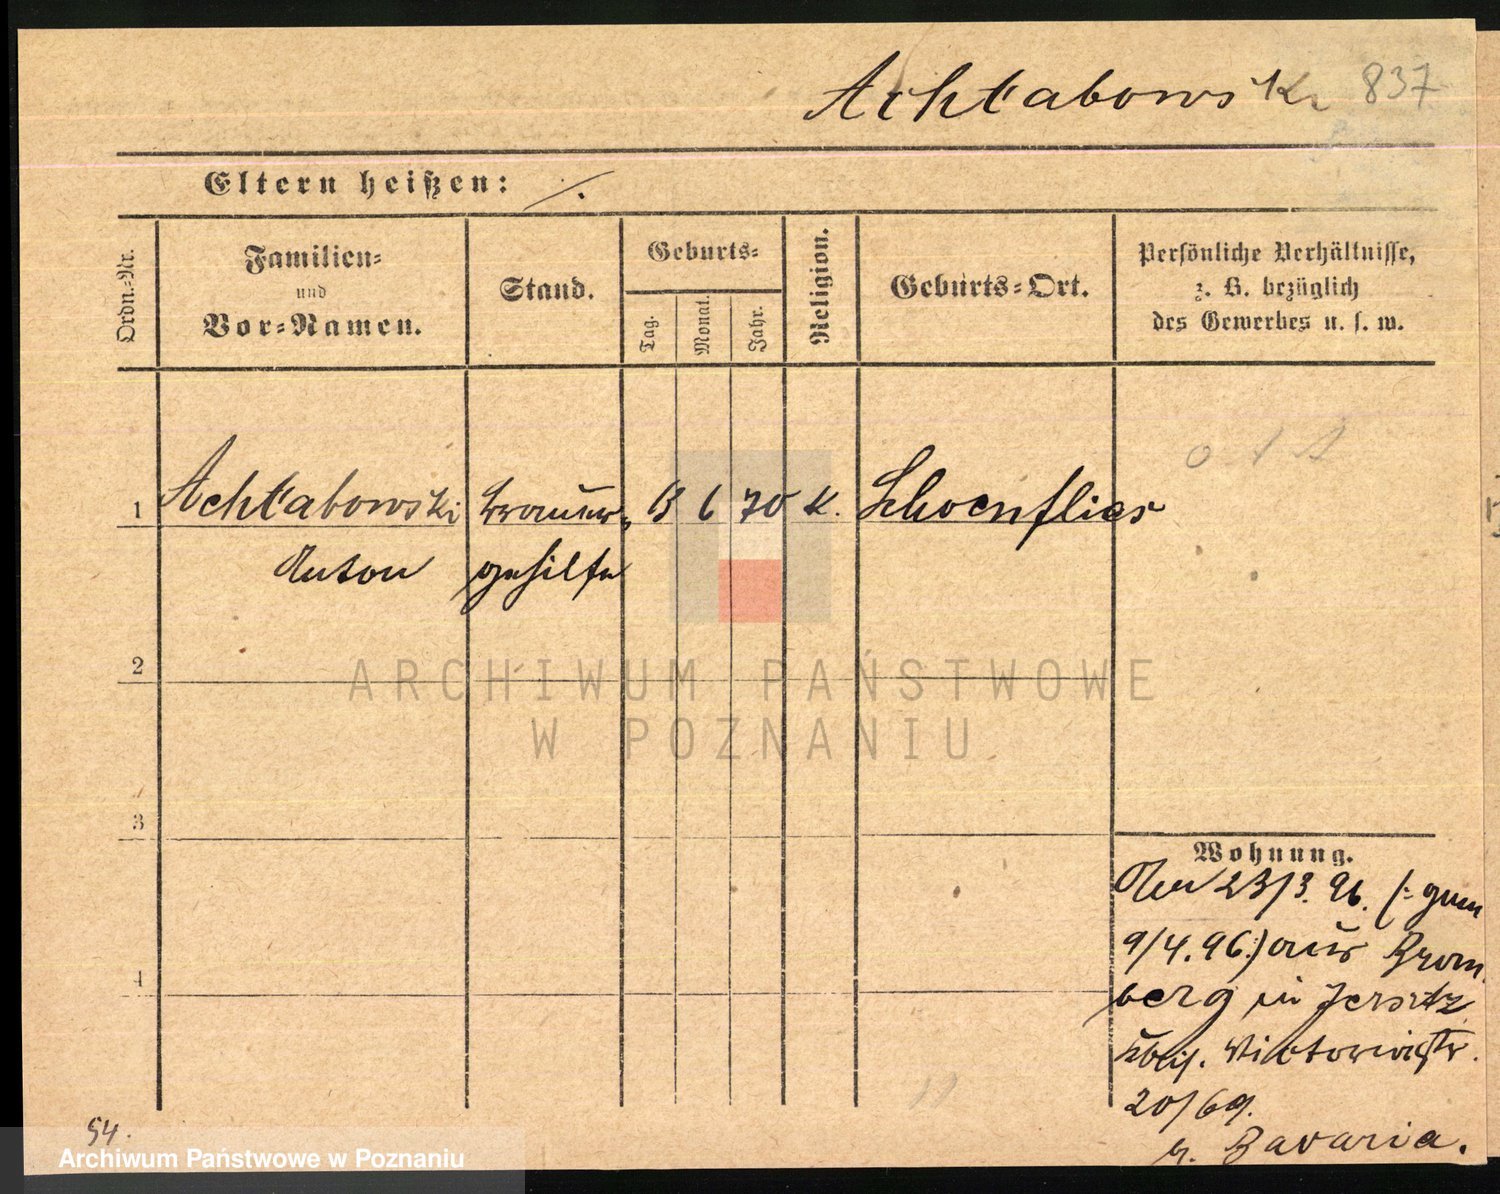 Achtabowski 837
Eltern heißen: ./.
Ordn.-Nr.
Familien-
und
Vor-Namen.
Stand.
Geburts-
Tag.
Monat.
Jahr.
Religion.
Geburts-Ort.
Persönliche Verhältnisse,
z. B. bezüglich
des Gewerbes u. s. w.
0 1 1
1 Achtabowski Brauer- 13 6 70 K. Schoenflies
Anton gehilfe
2
3
4
ARCHIWUM PAŃSTWOWE
W POZNANIU
Wohnung.
Am 23/3. 96. (: gem
9/4. 96.:) aus Brom
berg in Jersitz
Victoriastr.
20/69.
b. Bavaria.
54.
Archiwum Państwowe w Poznaniu